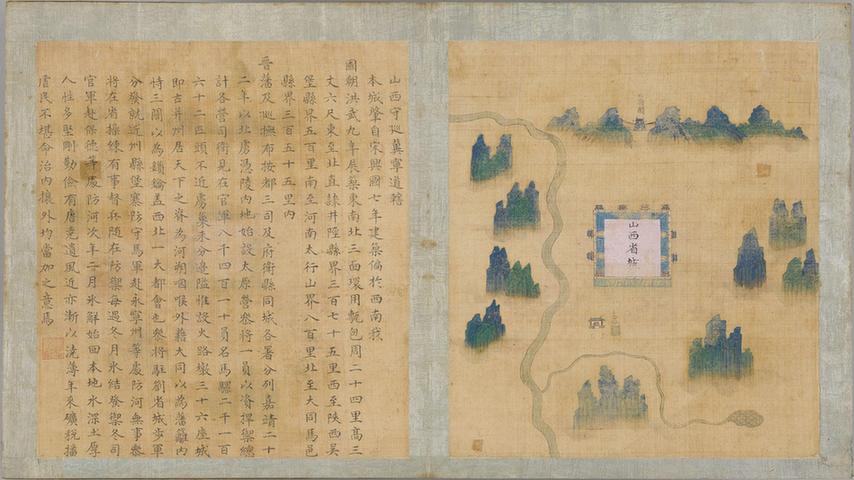 山西守巡冀寧道轄
本城肇自宋興國七年建築偏於西南我
國朝洪武九年展築東南北三面環用甎包周二十四里高三
丈六尺東至北直隷井陘縣界三百七十五里西至陝西吴
堡縣界五百里南至河南太行山界八百里北至大同馬邑
縣界三百五十五里内
晉藩及巡撫布按都三司及府衛縣同城各署分列嘉靖二十
二年以北虜憑陵内地始設太原營叅將一員以資捍禦總
計各營司衛見在官軍八千四百一十員名馬騾二千一百
六十二匹頭不近虜巢未分邊隘惟設火路墩三十六座城
即古并州居天下之脊為河朔咽喉外藉大同以為藩籬内
恃三關以為鎖鑰盖西北一大都會也叅將駐劄省城步軍
分發就近州縣堡寨防守馬軍赴永寧州等處防河無事叅
將在省操練有事督兵随在防禦每遇冬月氷結發禦冬司
官軍赴保德等處防河次年二月氷觧始回本地水深土厚
人性多堅剛勤儉有唐堯遺風近亦漸以澆薄年來礦稅播
虐民不堪命治内攘外均當加之意焉
山西省城